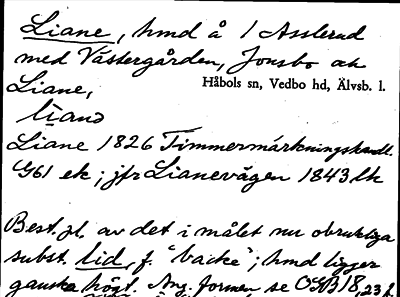 Liane, hmd å 1 Asslerud
med Västergården, Jonsbo och
Liane,
Håbols sn, Vedbo hd, Älvsb. l.
Liane 1826 Timmermärkningshandl.
G61 ek; jfr Lianevägen 1843 lk
Best. pl. av det i målet nu obrukliga
subst. lid, f. "backe"; hmd ligger
ganska högt. Ang. formen se OGB 18, 23 f.